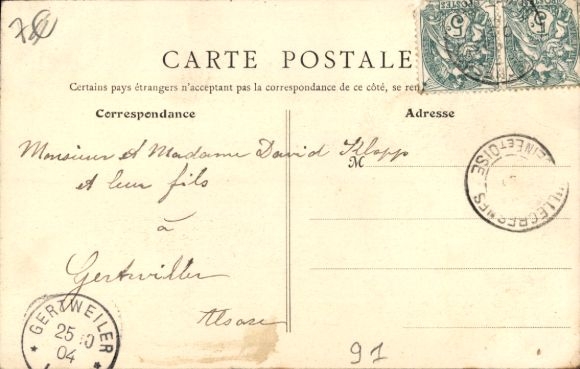 78
CARTE POSTALE
Certains pays étrangers n'acceptant pas la correspondance de ce côté, se ren
Correspondance
Adresse
Monsieur et Madame David Klopp
M
et leur fils
à
Gertwiller
Alsace
GERTWEILER
25 10
04
SEINE ET OISE
5
POSTES
5
91